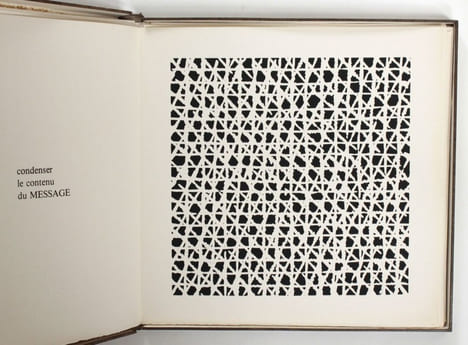 condenser
le contenu
du MESSAGE